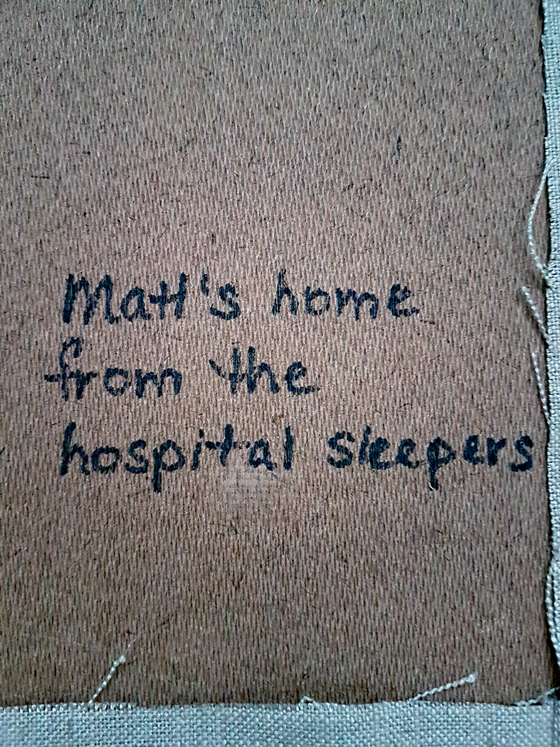 Matt's home
from the
hospital sleepers